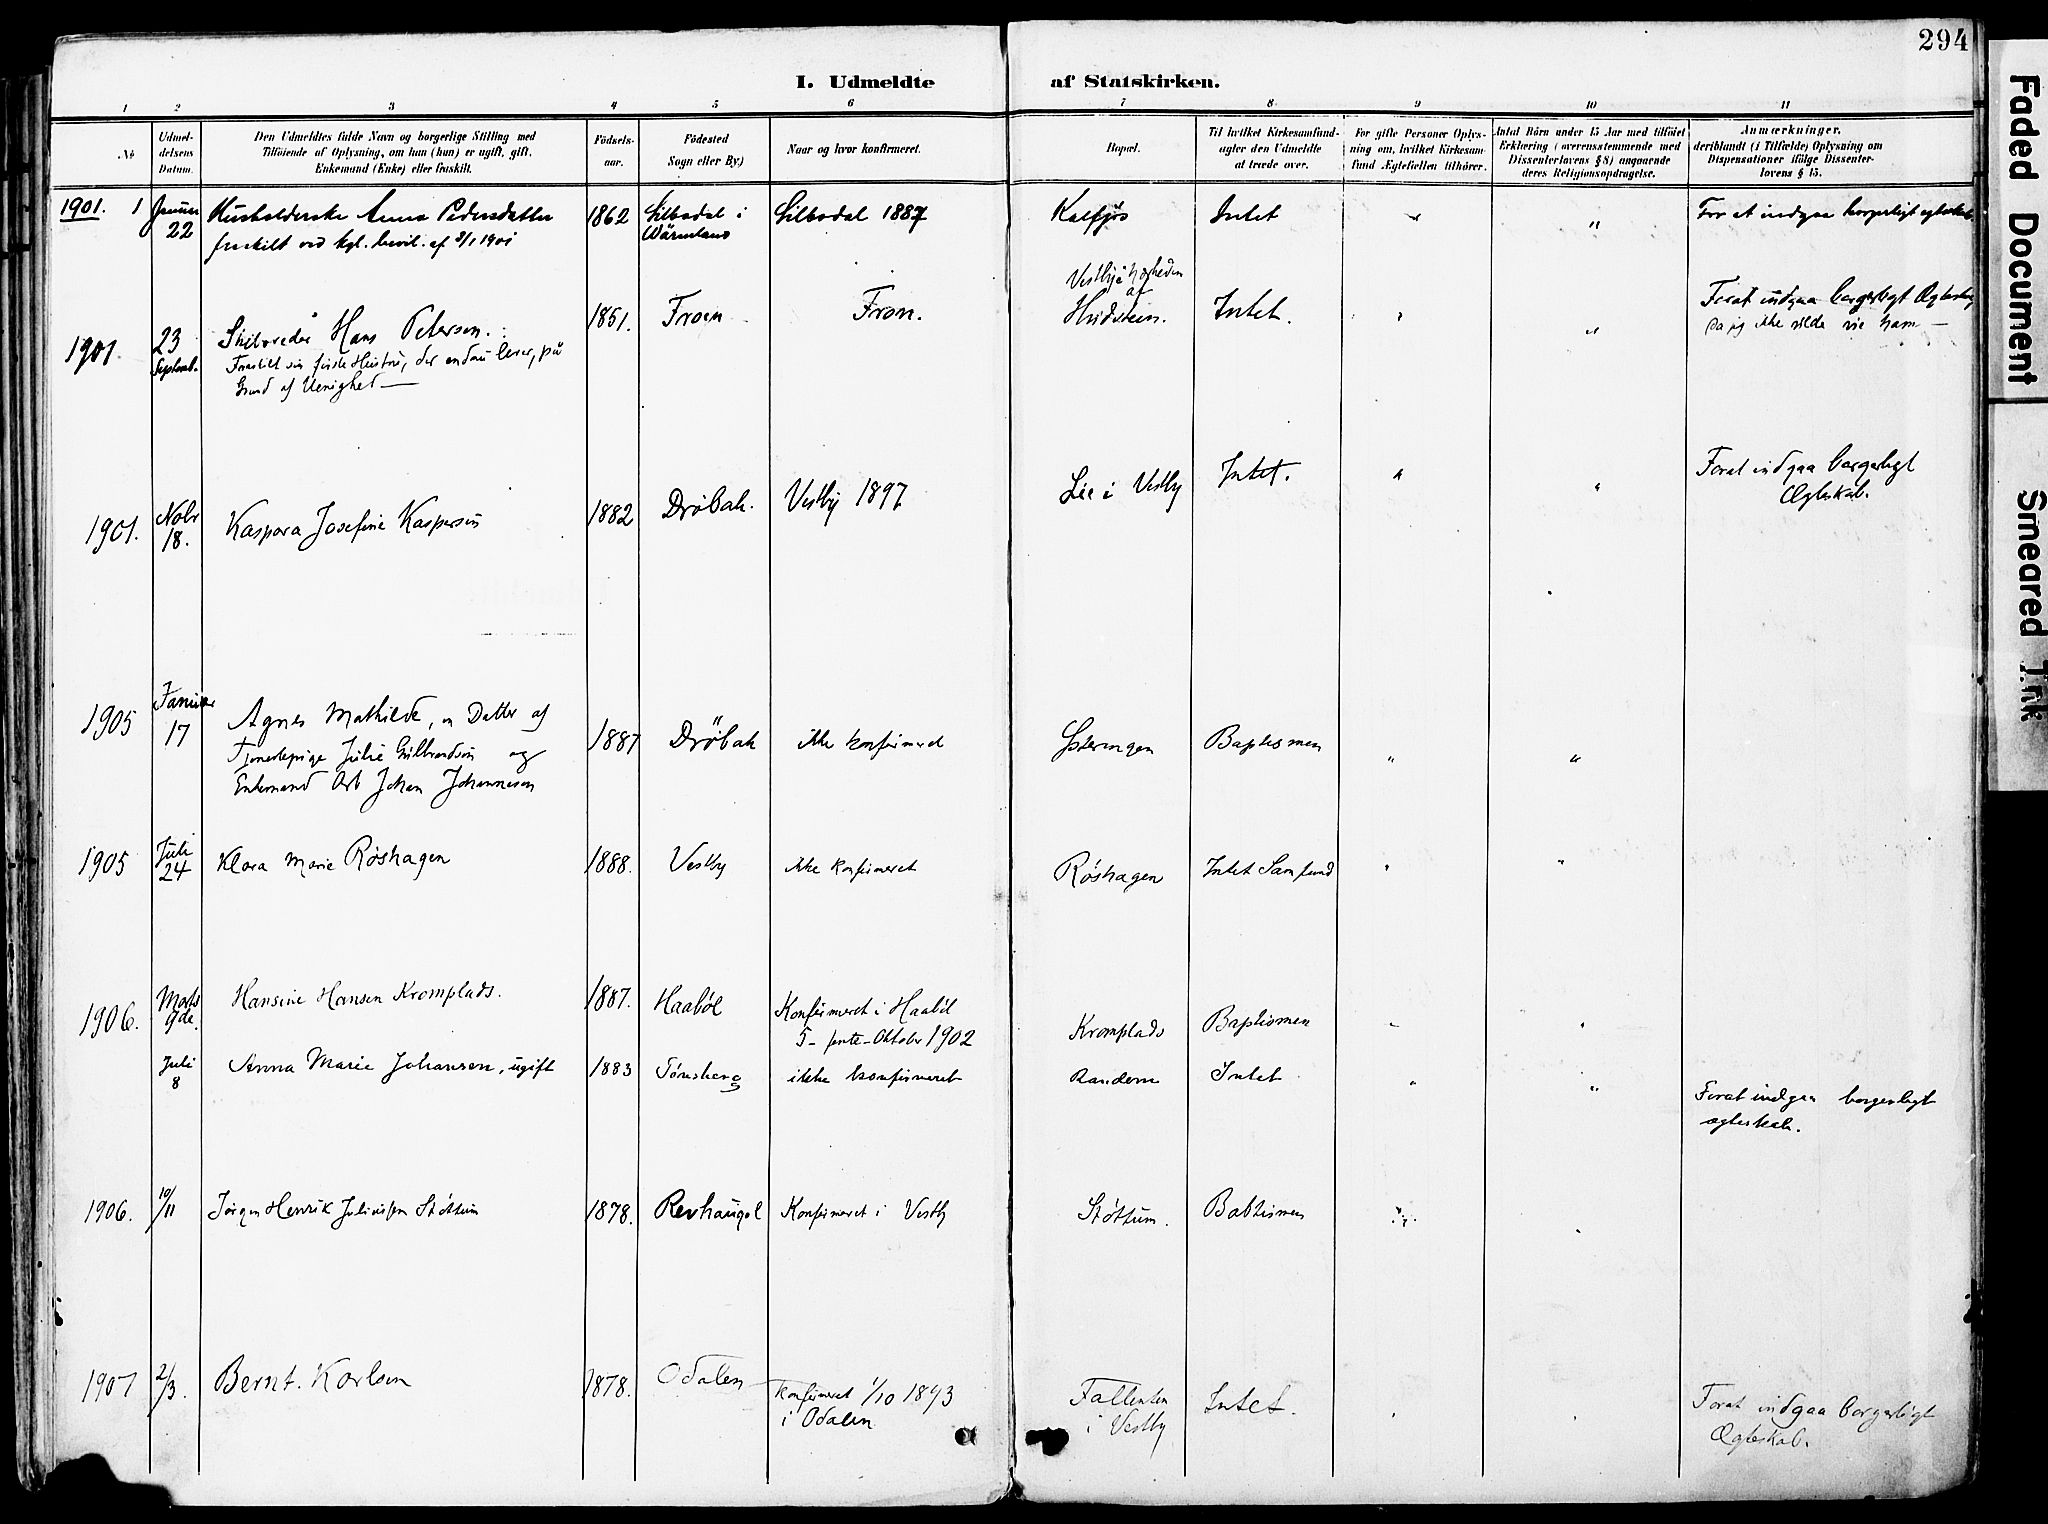 294
I. Udmeldte af Statskirken.
1 2 3 4 5 6 7 8 9 10 11
No
Udmeldelsens Datum.
Den Udmeldtes fulde Navn og borgerlige Stilling med
Tilföiende af Oplysning, om han (hun) er ugift, gift,
Enkemand (Enke) eller fraskilt.
Födselsaar.
Födested
Sogn eller By)
Naar og hvor konfirmeret.
Bopæl.
Til hvilket Kirkesamfund
agter den Udmeldte
at træde over.
For gifte Personer Oplysning om, hvilket Kirkesamfund Ægtefællen tilhörer.
Antal Börn under 15 Aar med tilföiet
Erklæring (overensstemmende med
Dissenterlovens § 8) angaaende
deres Religionsopdragelse.
Anmærkninger,
deriblandt (i Tilfælde) Oplysning om
Dispensationer ifölge Dissenterlovens § 15.
1901. 1 Januar 22 Husholderske Anna Pedersdatter 1862 Silbodal i Wärmland Silbodal 1887 Kalfjös Intet " " For at indgaa borgerligt egteskab
fraskilt ved kgl. bevil. af 3/1 1901
1901. 23 Septemb. Skibsreder Hans Petersen. 1851. Froen Fron. Vestby i nærheden af Hvidsteen. Intet. " " Forat indgaa borgerligt Ægteskab
Fraskilt sin første Hustru, der endnu lever, på
Grund af Uenighed —
da jeg ikke vilde vie ham —
1901. Nobr 18. Kaspara Josefine Kaspersen 1882 Drøbak. Vestby 1897 Lie i Vestby Intet. " " Forat indgaa borgerligt
Ægteskab.
1905 Januar 17 Agnes Mathilde, en Datter af 1887 Drøbak ikke konfirmeret Baptismen " "
Tjenestepige Julie Gulbrandsen og
Enkemand Arb Johan Johannesen
1905 Juli 24 Klara Marie Røshagen 1888. Vestby ikke konfirmeret Røshagen Intet Samfund " "
1906. Marts 9de. Hansine Hansen Kromplads. 1887. Haabøl Konfirmeret i Haabøl
5- femte - Oktober 1902 Kromplads Baptismen " "
Juli 8 Anna Marie Johansen, ugift 1883 Tønsberg ikke konfirmeret Randem Intet " " Forat indgaa borgerligt
ægteskab.
1906. 10/11 Jørgen Henrik Støttum 1878. Revhaugol Konfirmeret i Vestby Støttum. Babtismen " "
1907 2/3. Bernt. Karlsen 1878. Odalen Konfirmeret 1/10 1893
i Odalen
i Vestby Intet. " " Forat indgaa borgerligt
Ægteskab.
Faded Document
Smeared Ink